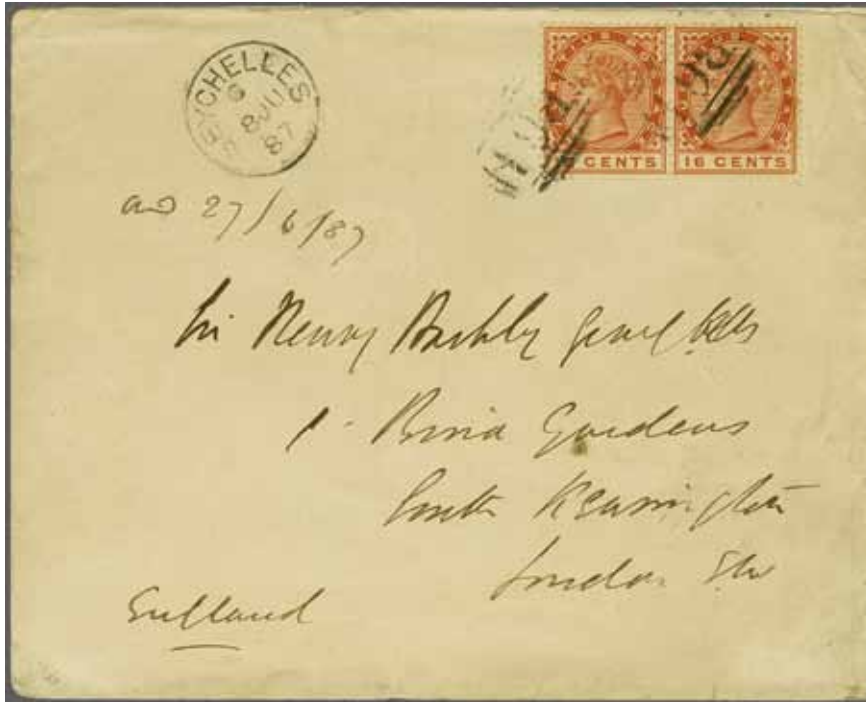 SEYCHELLES
G
8 JU
87
CENTS
16 CENTS
B64
27/6/87
Sir Henry Barkly
1. Bina Gardens
South Kensington
London SW
England